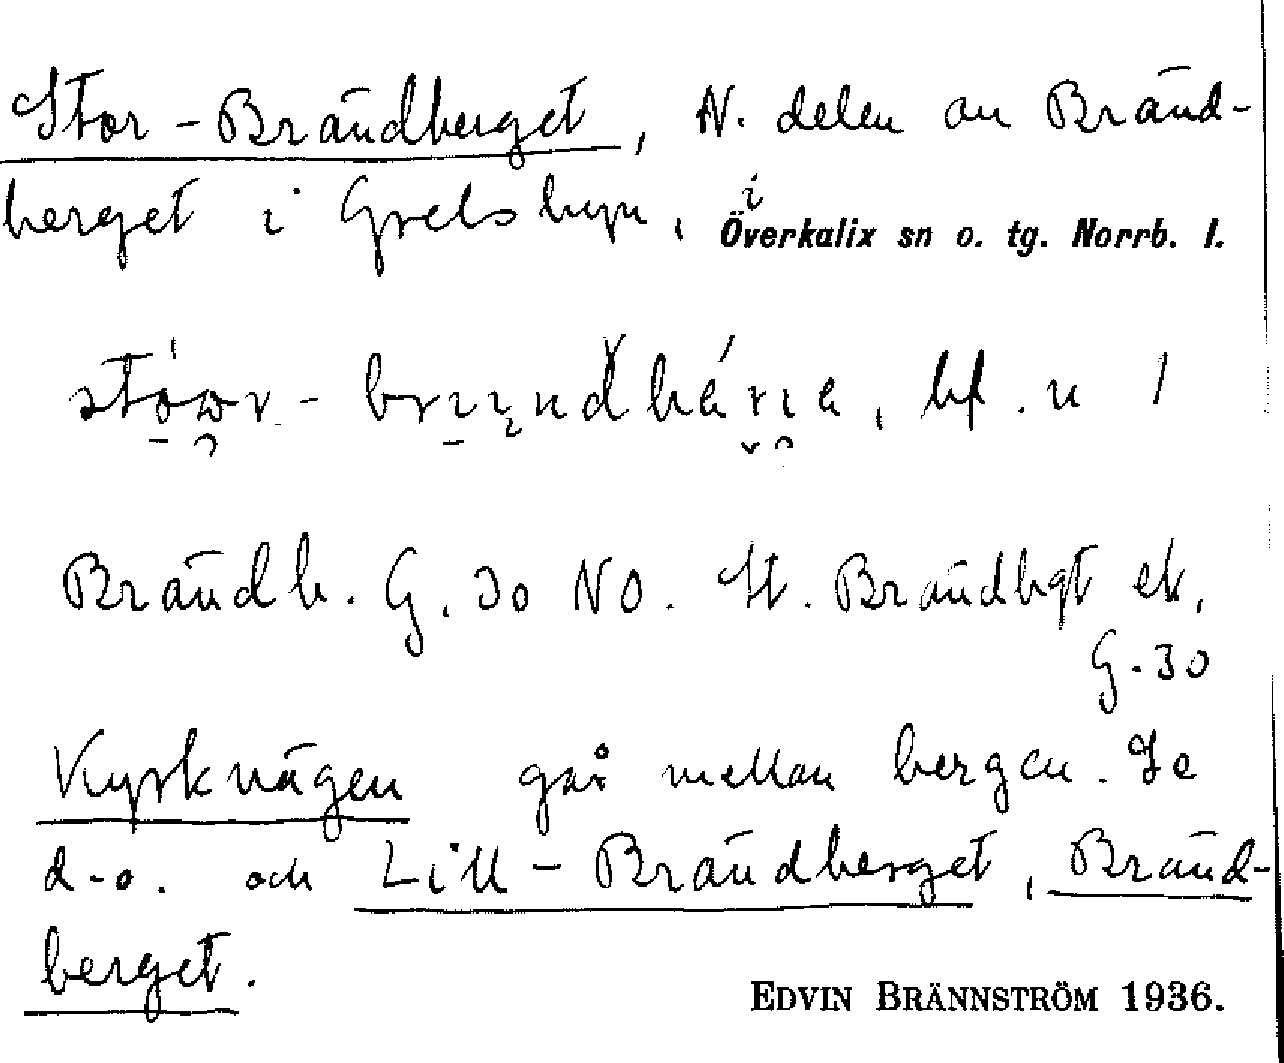 Stor-Brändberget, N. delen av Bränd-
berget i Grelsbyn, i
Överkalix sn o. tg. Norrb. l.
bf. n /
Brändb. G. 30 NO. St. Brändbgt ek.
G. 30
Kyrkvägen går mellan bergen. Se
d.o. och Lill-Brändberget, Bränd-
berget.
EDVIN BRÄNNSTRÖM 1936.